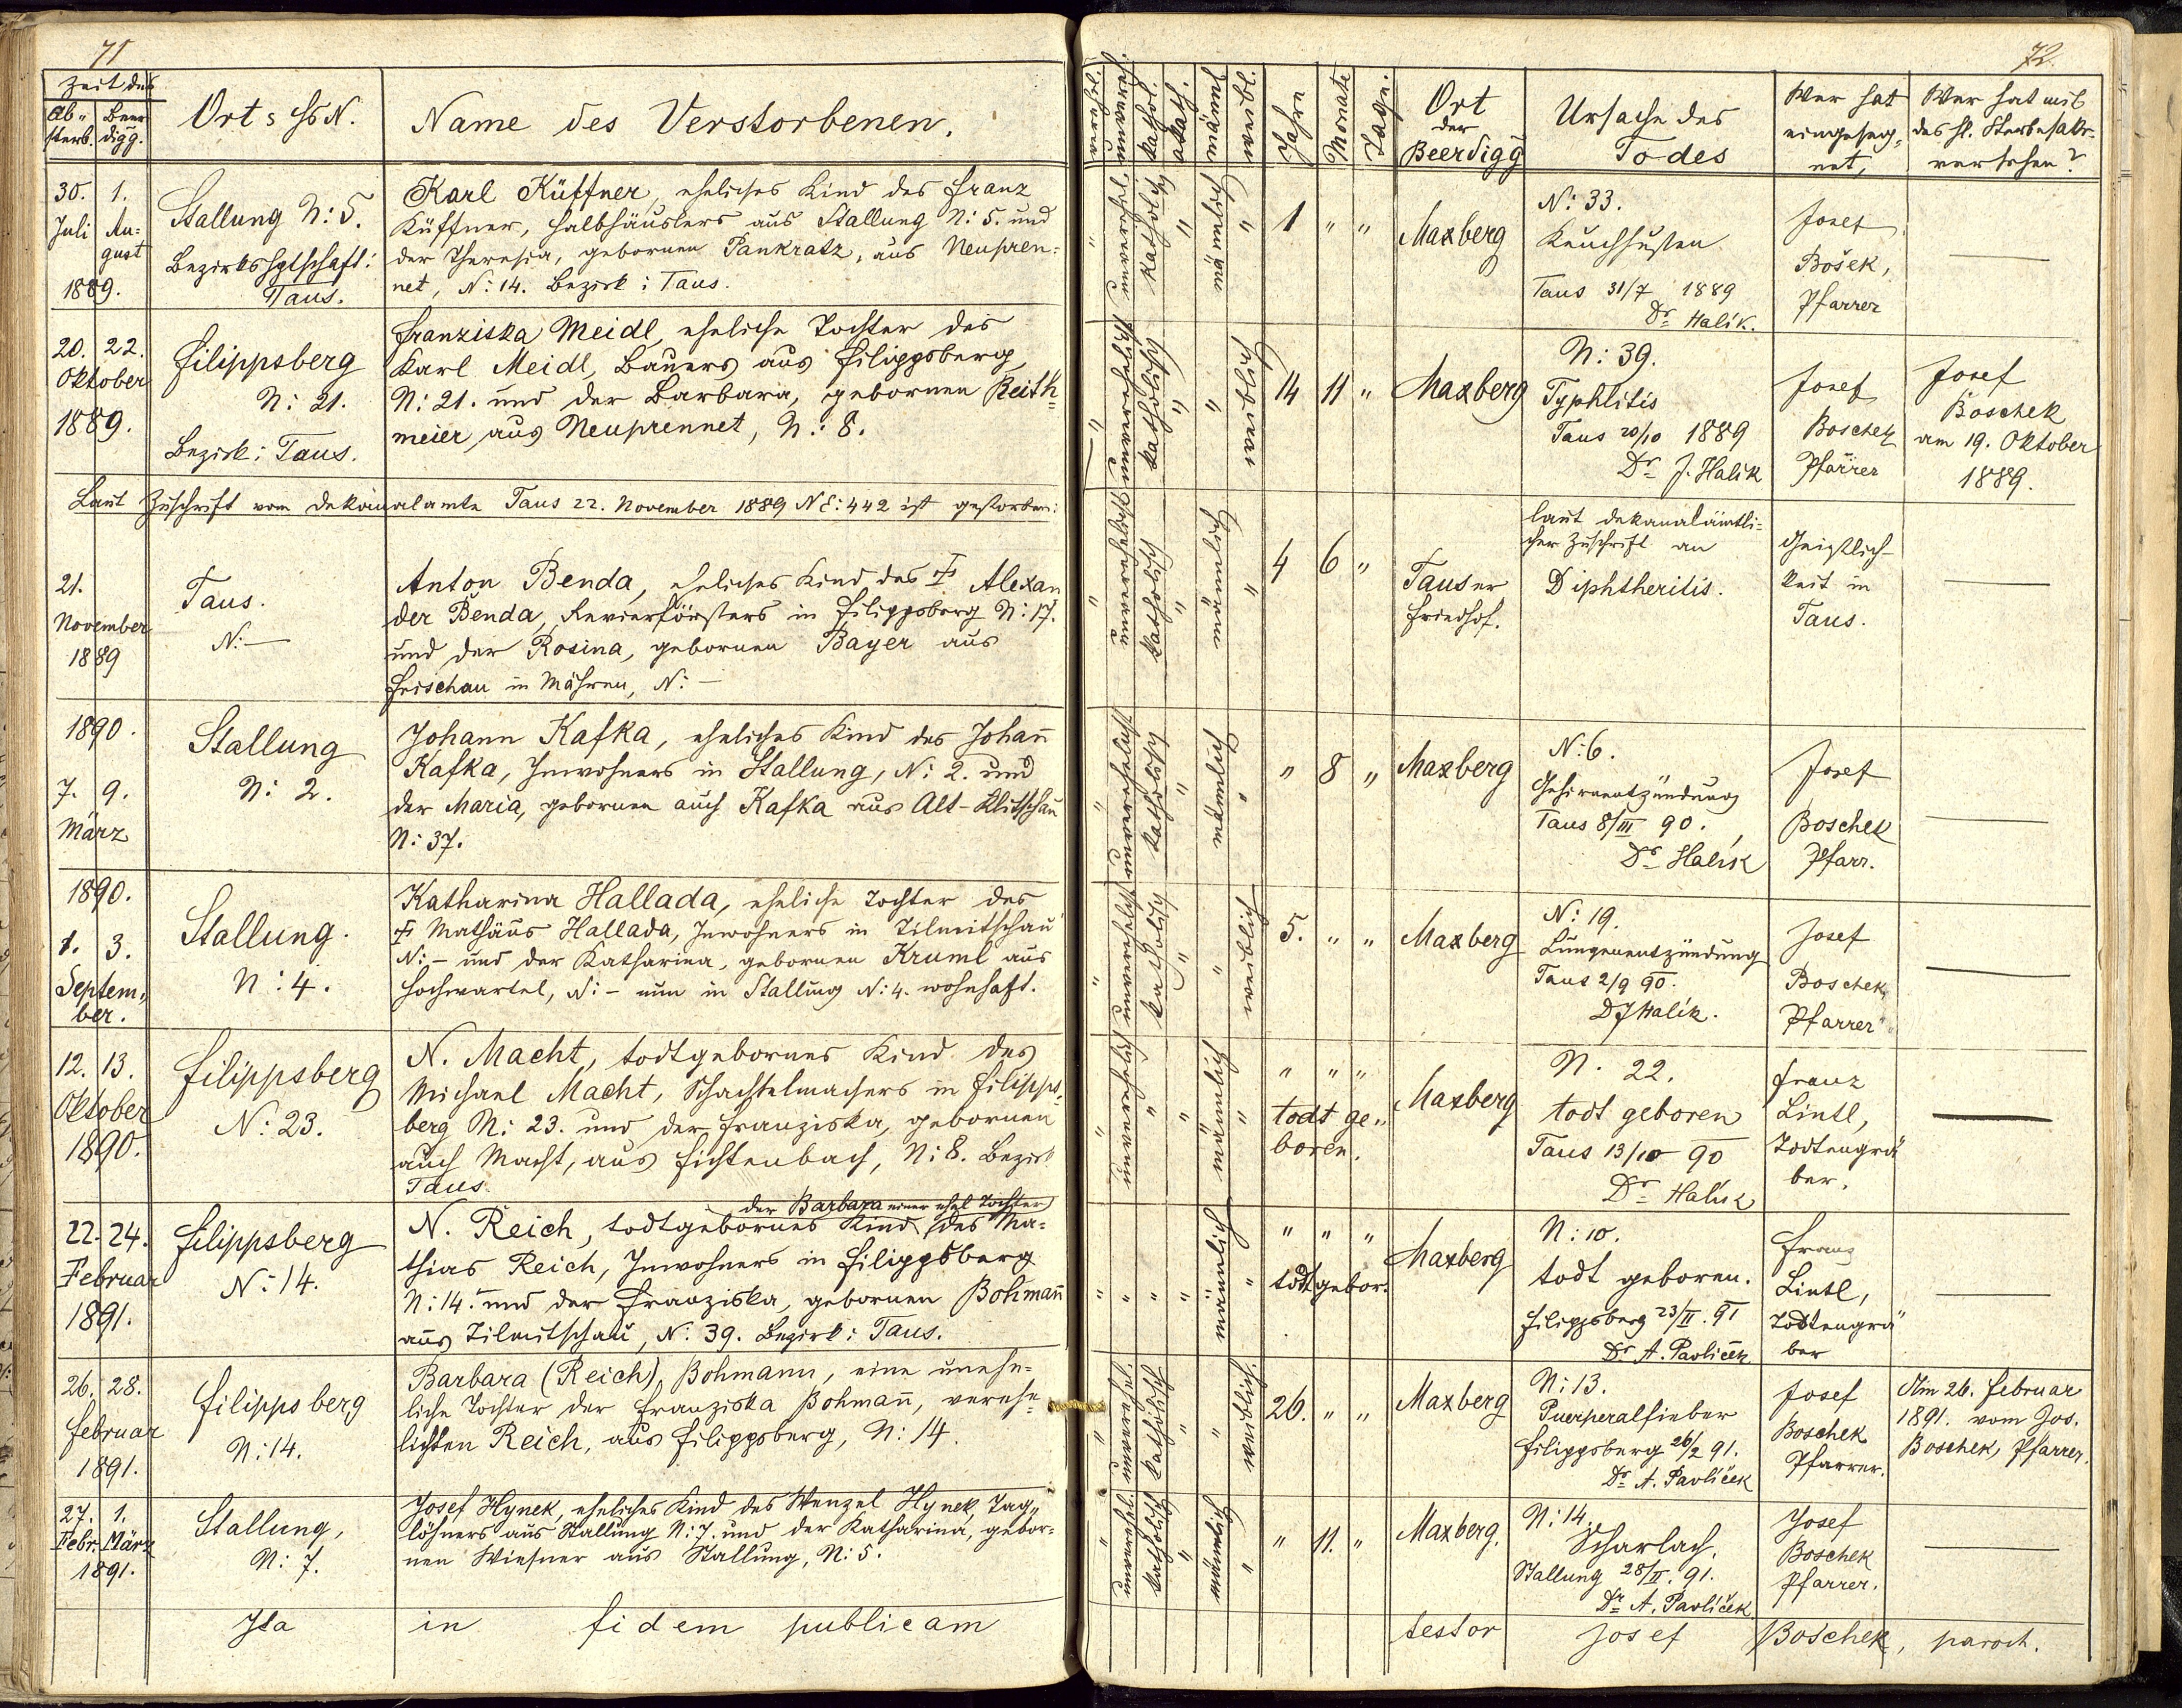 71
Zeit der
Ab-
sterb.
Beer
digg.
Ort s HsN.
Name des Verstorbenen.
30. 1.
Juli Au-
gust
1889.
Stallung N: 5.
Bezirkshptschaft:
Taus.
Karl Küffner, eheliches Kind des Franz
Küffner, Halbhäuslers aus Stallung N: 5. und
der Theresia, gebornen Pankratz, aus Neupren-
net, N: 14. Bezirk: Taus.
20. 22.
Oktober
1889.
Filippsberg
N: 21.
Bezirk: Taus.
Franziska Meidl, eheliche Tochter des
Karl Meidl, Bauers aus Filippsberg
N: 21. und der Barbara, gebornen Reith-
meier aus Neuprennet, N: 8.
Laut Zuschrift vom Dekanalamte Taus 22. November 1889 NE: 442 ist gestorben:
21.
November
1889
Taus.
N: —
Anton Benda, eheliches Kind des † Alexan
der Benda, Revierförsters in Filippsberg N: 17.
und der Rosina, gebornen Bayer aus
Frischau in Mähren, N: —
1890.
7. 9.
März
Stallung
N: 2.
Johann Kafka, eheliches Kind des Johan̄
Kafka, Inwohners in Stallung, N: 2. und
der Maria, gebornen auch Kafka aus Alt-Klitschau
N: 37.
1890.
1. 3.
Septem-
ber.
Stallung.
N: 4.
Katharina Hallada, eheliche Tochter des
† Mathäus Hallada, Inwohners in Tilmitschau
N: – und der Katharina, gebornen Kruml aus
Hochwartel, N: – nun in Stallung N: 4. wohnhaft.
12. 13.
Oktober
1890.
Filippsberg
N: 23.
N. Macht, todtgebornes Kind des
Michael Macht, Schachtelmachers in Filipps-
berg N: 23. und der Franziska, gebornen
auch Macht, aus Fichtenbach, N: 8. Bezirk
Taus.
22. 24.
Februar
1891.
Filippsberg
N: 14.
der Barbara einer ehel Tochter
N. Reich, todtgebornes Kind des Ma-
thias Reich, Inwohners in Filippsberg
N: 14. und der Franziska, gebornen Bohman̄
aus Tilmitschau, N: 39. Bezirk: Taus.
26. 28.
Februar
1891.
Filippsberg
N: 14.
Barbara (Reich), Bohmann, eine unehe-
liche Tochter der Franziska Bohman̄, verehe-
lichten Reich, aus Filippsberg, N: 14.
27. 1.
Febr. März
1891.
Stallung,
N: 7.
Josef Hynek, eheliches Kind des Wenzel Hynek, Tag-
löhners aus Stallung N: 7. und der Katharina, gebor-
nen Wiesner aus Stallung, N: 5.
Ita in fidem publicam
72.
kathol.
akath.
männl
weibl.
Jahre
Monate
Tage.
Ort
der
Beerdigg
Ursache des
Todes
Wer hat
eingeseg-
net,
Wer hat mit
des hl. Sterbesakr.
versehen?
" unverehel. katholisch " männlich " 1 " "
Maxberg
N: 33.
Keuchhusten
Taus 31/7 1889
Dr Halík.
Josef
Bošek,
Pfarrer
" unverehelicht katholisch " " weiblich 14 11 "
Maxberg
N: 39.
Typhlitis
Taus 20/10 1889
Dr J. Halík
Josef
Boschek
Pfarrer
Josef
Boschek
am 19. Oktober
1889.
" unverehelicht katholisch " männlich " 4 6 "
Tauser
Friedhof.
laut dekanalämtli-
cher Zuschrift an
Diphtheritis.
Geistlich-
keit in
Taus.
" unverehelicht katholisch " männlich " " 8 "
Maxberg
N: 6.
Gehirnentzündung
Taus 8/III 90.
Dr Halík
Josef
Boschek
Pfarr.
" unverehelicht katholisch " " weiblich 5. " "
Maxberg
N: 19.
Lungenentzündung
Taus 2/9 90.
DJHalík.
Josef
Boschek,
Pfarrer
" unverehelich " " männlich " " " "
todt ge-
boren.
Maxberg
N. 22.
todt geboren
Taus 13/10 90
Dr Halík
Franz
Lintl,
Todtengrä
ber.
" " " " männlich " " " "
todtgebor.
Maxberg
N: 10.
todt geboren.
Filippsberg 23/II. 91
Dr A. Pavlíček
Franz
Lintl,
Todtengrä
ber
" unverehel. katholisch " " weiblich. 26. " "
Maxberg
N: 13.
Puerperalfieber
Filippsberg 26/2 91.
Dr A. Pavlíček
Josef
Boschek
Pfarrer.
Am 26. Februar
1891. vom Jos.
Boschek, Pfarrer.
" unverehel. katholisch " männlich " " 11. "
Maxberg.
N: 14.
Scharlach.
Stallung 28/II. 91.
Dr A. Pavlíček
Josef
Boschek
Pfarrer.
testor Josef Boschek, paroch.